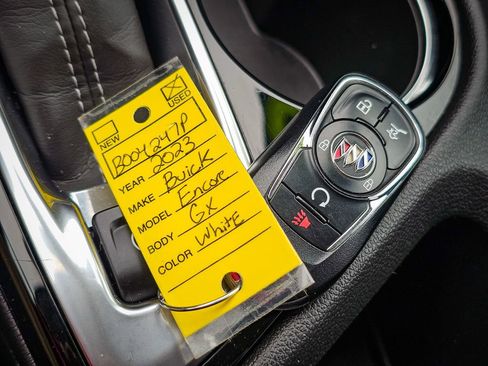 NEW USED
B004247P
YEAR 2023
MAKE Buick
MODEL Encore
BODY GX
COLOR White